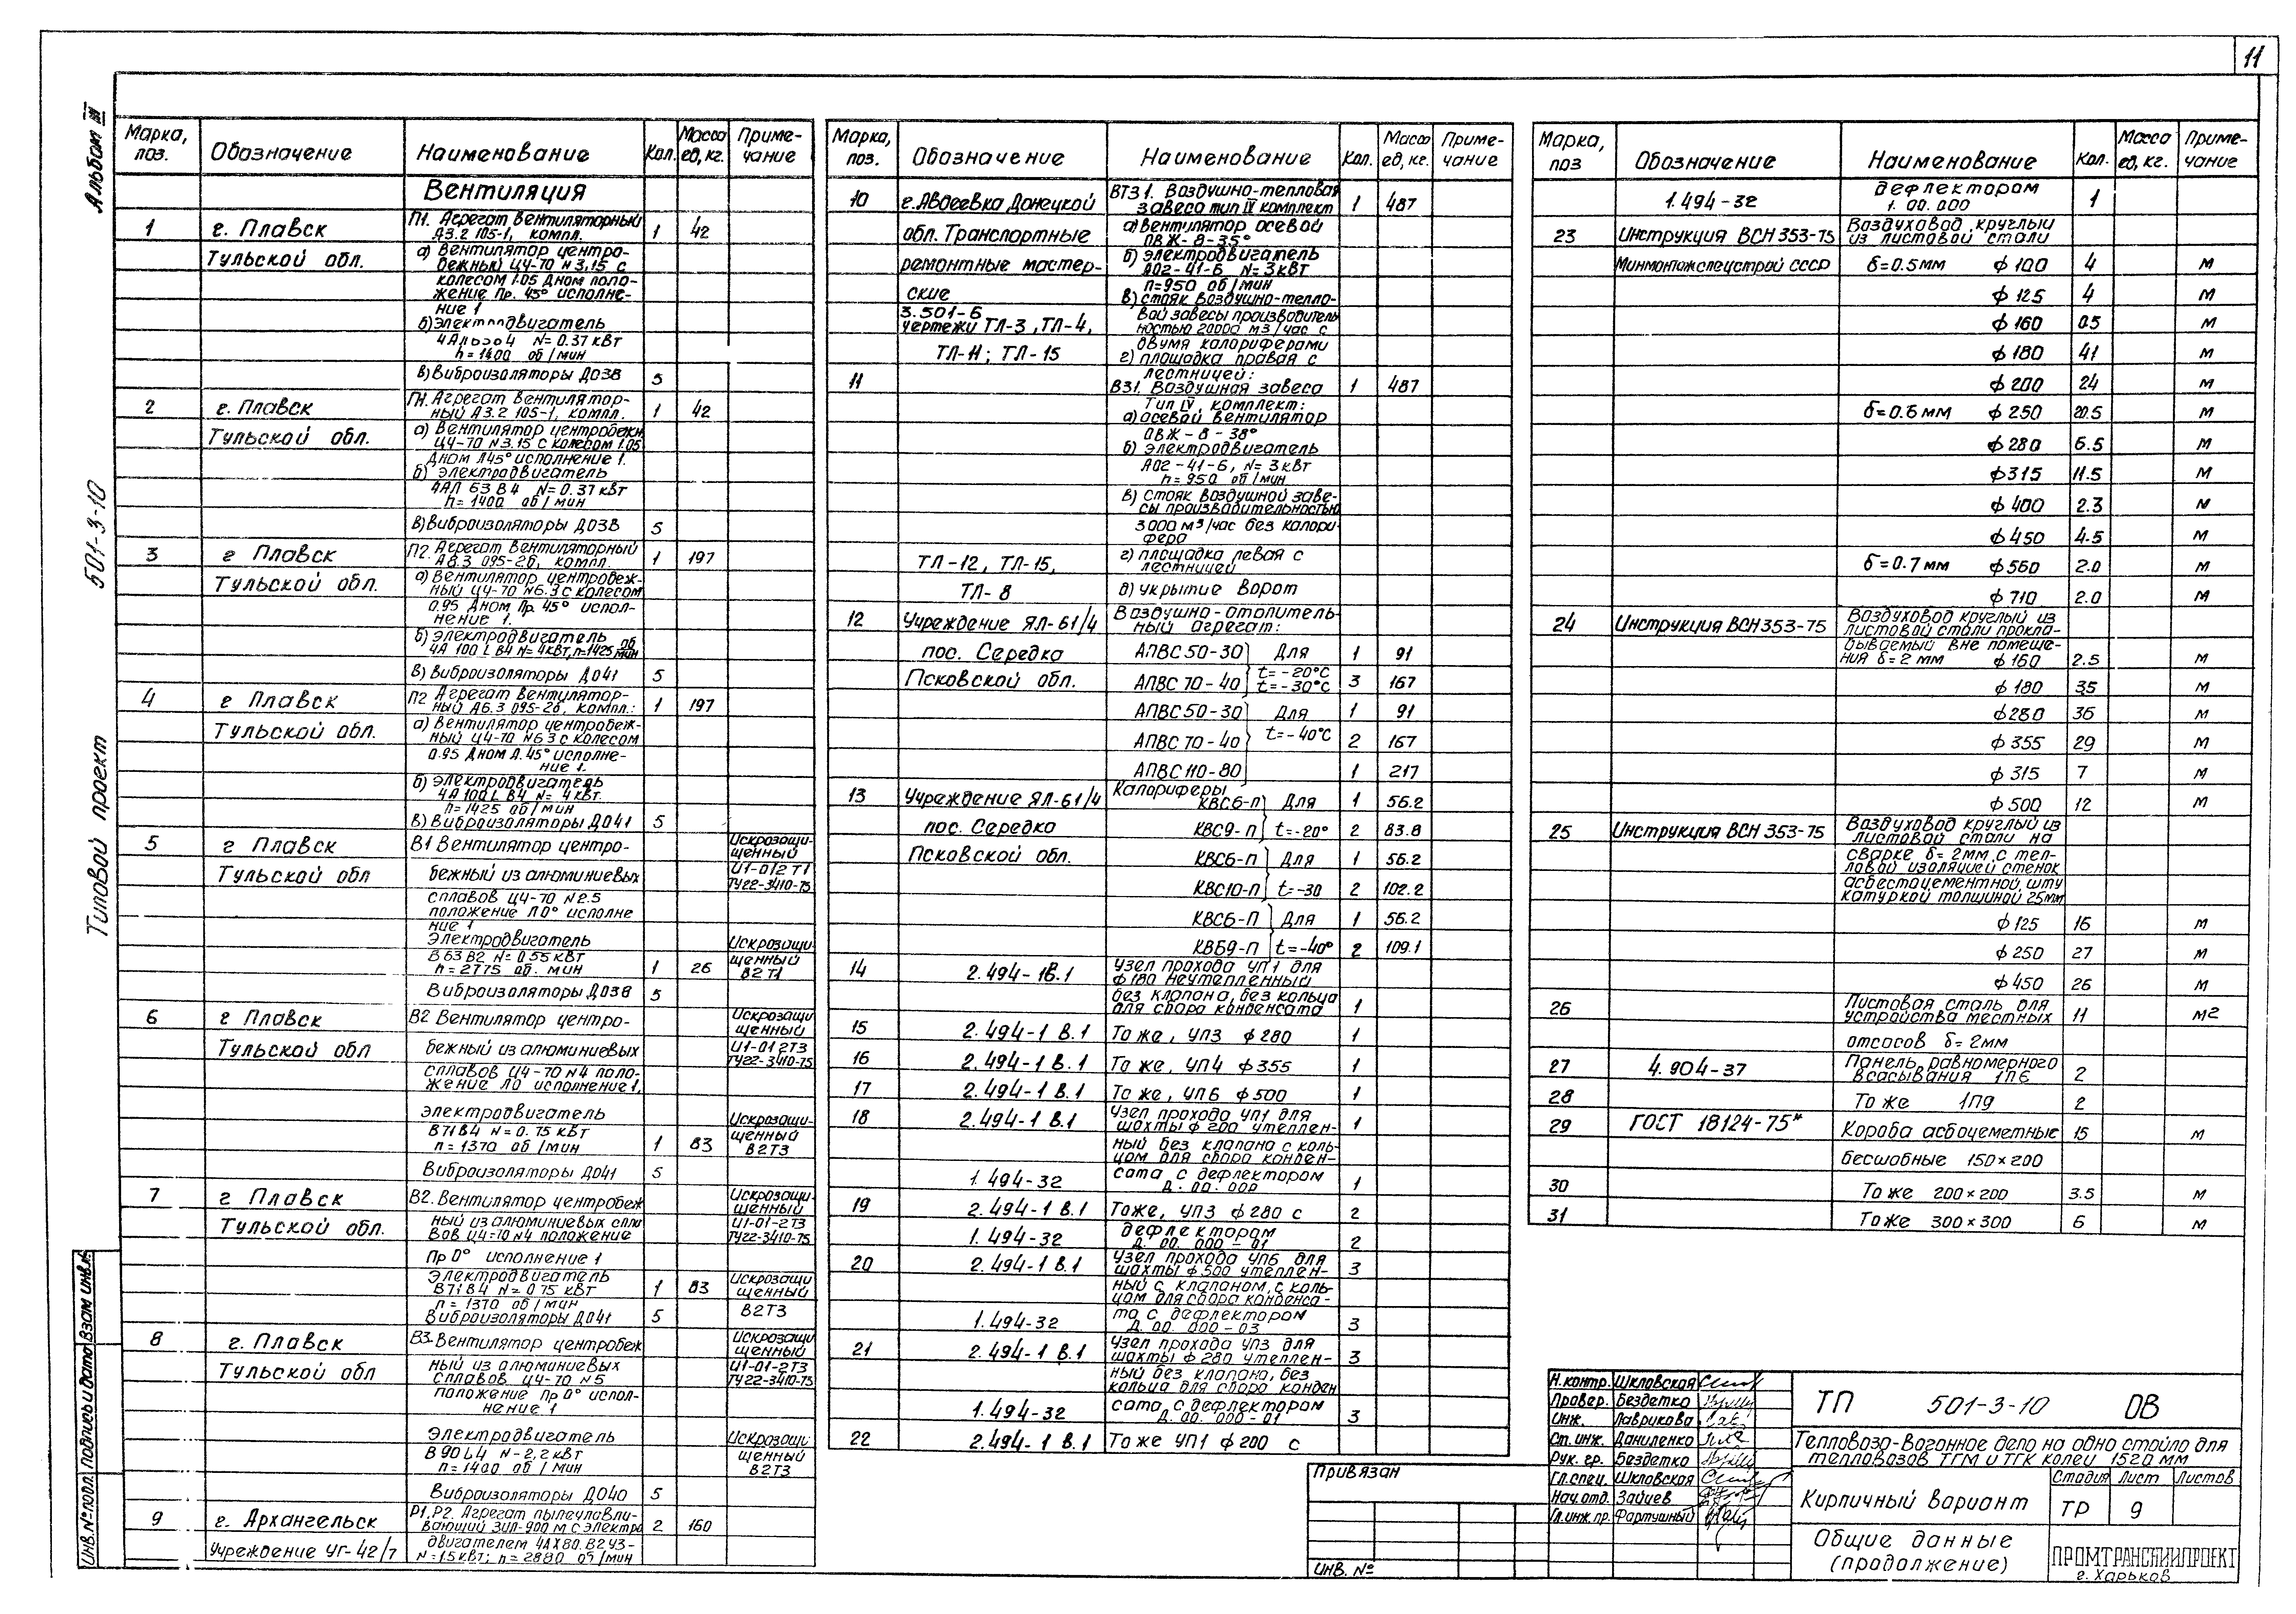 11
Альбом III
501-3-10
Типовой проект
Марка, поз.
Обозначение
Наименование
Кол.
Масса ед, кг.
Приме-
чание
Вентиляция
1 г. Плавск П1. Агрегат вентиляторный
А3.2 105-1, компл. 1 42
Тульской обл. а) Вентилятор центро-
бежный Ц4-70 N3.15 с
колесом 1.05 Дном поло-
жение Пр. 45° исполне-
ние 1
б) Электродвигатель
N=0.37 кВт
n=1400 об/мин
в) Виброизоляторы Д038 5
2 г. Плавск Агрегат вентилятор-
ный А3.2 105-1, компл. 1 42
Тульской обл. а) Вентилятор центробежн
Ц4-70 N3.15 с колесом 1.05
Дном Л45° исполнение 1.
б) электродвигатель
4АЛ 63 В4 N=0.37 кВт
n=1400 об/мин
в) Виброизоляторы Д038 5
3 г Плавск П2. Агрегат вентиляторный
095-2б, компл. 1 197
Тульской обл. а) Вентилятор центробеж-
ный Ц4-70 N6.3 с колесом
0.95 Дном Пр. 45° испол-
нение 1.
б) электродвигатель
4А 100 L В4 N=4кВт, n=1425 об/мин
в) Виброизоляторы Д041 5
4 г Плавск П2 Агрегат вентилятор-
ный А6.3 095-2б, компл.: 1 197
Тульской обл. а) Вентилятор центробеж-
ный Ц4-70 N6.3 с колесом
0.95 Дном Л. 45° исполне-
ние 1.
б) электродвигатель
4А 100 L В4 N= 4кВт.
n=1425 об/мин
в) Виброизоляторы Д041 5
5 г Плавск В1 Вентилятор центро- Искрозащи-
щенный
Тульской обл бежный из алюминиевых И1-012Т1
ТУ22-3410-75
сплавов Ц4-70 N2.5
положение Л0° исполне
ние 1
Электродвигатель Искрозащи-
В63В2 N=0.55 кВт щенный
n=2775 об. мин 1 26 В2Т1
Виброизоляторы Д038 5
6 г Плавск В2 Вентилятор центро- Искрозащи
щенный
Тульской обл бежный из алюминиевых И1-01 2Т3
ТУ22-3410-75
сплавов Ц4-70 N4 поло-
жение Л0 исполнение 1,
электродвигатель Искрозащи-
В71В4 N=0.75 кВт щенный
n=1370 об/мин 1 83 В2Т3
Виброизоляторы Д041 5
7 г Плавск В2. Вентилятор центробеж Искрозащи-
щенный
Тульской обл. ный из алюминиевых спла И1-01-2Т3
вов Ц4-70 N4 положение ТУ22-3410-75
Пр 0° исполнение 1
Электродвигатель Искрозащи
В71В4 N=0.75 кВт 1 83 щенный
n=1370 об/мин
Виброизоляторы Д041 5 В2Т3
8 г. Плавск В3-Вентилятор центробеж Искрозащи
щенный
Тульской обл ный из алюминиевых И1-01-2Т3
сплавов Ц4-70 N5 ТУ22-3410-75
положение Пр 0° испол-
нение 1
Электродвигатель Искрозащи
В90L4 N-2,2 кВт щенный
n=1400 об/мин В2Т3
Виброизоляторы Д040 5
9 г. Архангельск Р1,Р2. Агрегат пылеулавли-
вающий ЗИЛ-900 м с электро 2 160
Учреждение УГ-42/7 двигателем 4АХ80.В2У3-
N=1.5 кВт; n=2880 об/мин
Марка, поз.
Обозначение
Наименование
Кол.
Масса ед, кг.
Приме-
чание
10 г. Авдеевка Донецкой ВТ31. Воздушно-тепловая
завеса тип IV комплект 1 487
обл. Транспортные а) Вентилятор осевой
ОВЖ-8-35°
ремонтные мастер- б) электродвигатель
А02-41-6 N=3кВт
n=950 об/мин
ские в) стояк воздушно-тепло-
3.501-6 вой завесы производитель
чертежи ТЛ-3, ТЛ-4, ностью 20000 м3/час с
двумя калориферами
ТЛ-11; ТЛ-15 г) площадка правая с
лестницей:
11 В31. Воздушная завеса 1 487
Тип IV, комплект:
а) осевой вентилятор
ОВЖ-8-38°
б) электродвигатель
А02-41-6, N=3кВт
n=950 об/мин
в) стояк воздушной заве-
сы производительностью
3000 м³/час без калори
фера
ТЛ-12, ТЛ-15, г) площадка левая с
лестницей
ТЛ-8 д) укрытие ворот
12 Учреждение ЯЛ-61/4 Воздушно-отопитель-
ный агрегат:
пос. Середка АПВС 50-30 Для 1 91
Псковской обл. АПВС 70-40 t=-20°С t=-30°С 3 167
АПВС 50-30 Для 1 91
АПВС 70-40 t=-40°С 2 167
АПВС 110-80 1 217
13 Учреждение ЯЛ-61/4 Калориферы
КВС6-П Для 1 56.2
пос. Середка КВС9-П t=-20° 2 83.8
Псковской обл. КВС6-П Для 1 56.2
КВС10-П t=-30 2 102.2
КВС6-П Для 1 56.2
КВБ9-П t=-40° 2 109.1
14 2.494-1В.1 Узел прохода УП1 для
ф180 неутепленный
без клапана, без кольца
для сбора конденсата 1
15 2.494-1 В.1 То же, УП3 ф280 1
16 2.494-1 В.1 То же, УП4 ф355 1
17 2.494-1 В.1 То же, УП6 ф500 1
18 2.494-1 В.1 Узел прохода УП1 для
шахты ф 200 утеплен- 1
ный без клапана с коль-
цом для сбора конден-
1.494-32 сата с дефлектором
Д. 00. 000 1
19 2.494-1 В.1 Тоже, УП3 ф280 с 2
1.494-32 дефлектором
Д. 00. 000-01 2
20 2.494-1 В.1 Узел прохода УП6 для
шахты ф500 утеплен- 3
ный с клапаном, с коль-
цом для сбора конденса-
1.494-32 та с дефлектором
Д. 00. 000-03 3
21 2.494-1 В.1 Узел прохода УП3 для
шахты ф 280 утеплен- 3
ный без клапана, без
кольца для сбора конден
1.494-32 сата с дефлектором
Д. 00. 000-01 3
22 2.494-1 В.1 То же УП1 ф200 с
Марка, поз
Обозначение
Наименование
Кол.
Масса ед, кг.
Приме-
чание
1.494-32 дефлектором
1. 00. 000 1
23 Инструкция ВСН 353-75 Воздуховод круглый
из листовой стали
Минмонтажспецстрой СССР δ=0.5мм ф100 4 м
ф125 4 м
ф160 0.5 м
ф180 41 м
ф200 24 м
δ=0.6мм ф250 20.5 м
ф280 6.5 м
ф315 11.5 м
ф400 2.3 м
ф450 4.5 м
δ=0.7мм ф560 2.0 м
ф710 2.0 м
24 Инструкция ВСН 353-75 Воздуховод круглый из
листовой стали прокла-
дываемый вне помеще-
ния δ=2мм ф160 2.5 м
ф180 35 м
ф280 36 м
ф355 29 м
ф315 7 м
ф500 12 м
25 Инструкция ВСН 353-75 Воздуховод круглый из
листовой стали на
сварке δ=2мм с теп-
ловой изоляцией стенок
асбестоцементной шту
катуркой толщиной 25мм
ф125 16 м
ф250 27 м
ф450 26 м
26 Листовая сталь для
устройства местных 11 м2
отсосов δ=2мм
27 4.904-37 Панель равномерного
всасывания 1П6 2
28 То же 1П9 2
29 ГОСТ 18124-75* Короба асбоцеметные 15 м
бесшовные 150×200
30 То же 200×200 3.5 м
31 То же 300×300 6 м
Привязан
ИНВ. №
Н.контр. Шкловская
Провер. Бездетко
Инж. Лаврикова
Ст. инж. Даниленко
Рук. гр. Бездетко
Гл.спец. Шкловская
Нач.отд. Зайцев
Гл.инж.пр. Фартушный
ТП 501-3-10 ОВ
Тепловозо-вагонное депо на одно стойло для
тепловозов ТГМ и ТГК колеи 1520 мм
Кирпичный вариант
Стадия Лист Листов
ТР 9
Общие данные
(продолжение)
ПРОМТРАНСНИИПРОЕКТ
г. Харьков
Инв.№ подл. Подпись и дата Взам инв.№